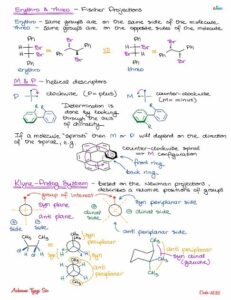 Erythro & Threo - Fischer Projections
Erythro - same groups are on the same side of the molecule.
threo - same groups are on the opposite sides of the molecule.
Ph Ph
Br Br
Br Br
Ph Ph
erythro threo
M & P - helical descriptors
P clockwise (P = plus) M counter-clockwise
(M = minus)
"Determination is done by looking through the axis" of chirality
If a molecule "spirals" then M or P will depend on the direction
of the spiral, e.g.
counter-clockwise spiral
M configuration
front ring
back ring
Klyne-Prelog System - based on the Newman projections,
describes the relative positions of groups
group of interest
syn plane
anti plane
syn side
anti side
syn periplanar
clinal side
anti periplanar side
syn periplanar
anti periplanar
syn clinal
(gauche)